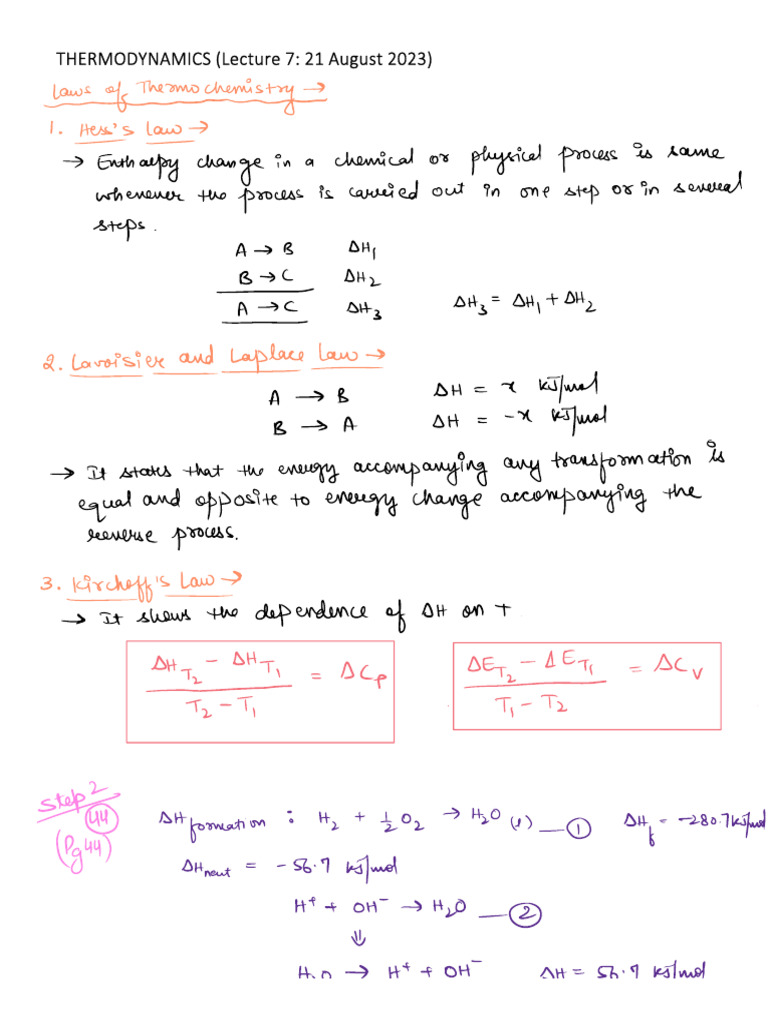 THERMODYNAMICS (Lecture 7: 21 August 2023)
Laws of Thermochemistry →
1. Hess's Law →
→ Enthalpy change in a chemical or physical process is same
whenever the process is carried out in one step or in several
steps.
A → B ΔH₁
B → C ΔH₂
A → C ΔH₃ ΔH₃ = ΔH₁ + ΔH₂
2. Lavoisier and Laplace Law →
A → B ΔH = x KJ/mol
B → A ΔH = -x KJ/mol
→ It states that the energy accompanying any transformation is
equal and opposite to energy change accompanying the
reverse process.
3. Kirchoff's Law →
→ It shows the dependence of ΔH on T
(ΔH_T₂ - ΔH_T₁) / (T₂ - T₁) = ΔCp
(ΔE_T₂ - ΔE_T₁) / (T₁ - T₂) = ΔCv
Step 2
44
(Pg 44)
ΔH formation : H₂ + ½ O₂ → H₂O (l) — ① ΔH_f = -280.7 KJ/mol
ΔH neut = -56.7 KJ/mol
H⁺ + OH⁻ → H₂O — ②
⇓
→ H⁺ + OH⁻ ΔH = 56.7 KJ/mol